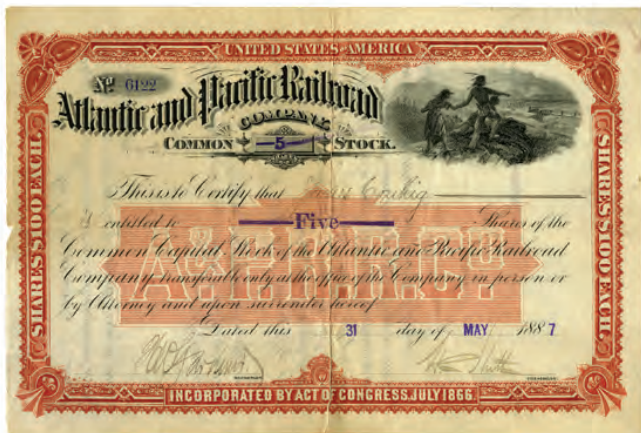 UNITED STATES OF AMERICA
No 6122
Atlantic and Pacific Railroad
COMPANY
COMMON 5 STOCK.
This is to Certify that
is entitled to Five Shares of the
Common Capital Stock of the Atlantic and Pacific Railroad
Company transferable only at the office of the Company in person or
by Attorney and upon surrender hereof
Dated this 31 day of MAY 1887
INCORPORATED BY ACT OF CONGRESS, JULY 1866.
SHARES $100 EACH.
SHARES $100 EACH.